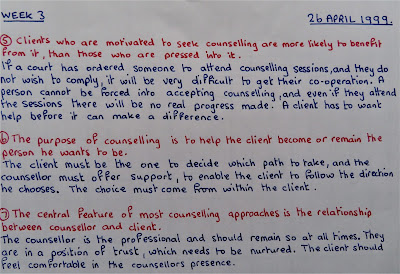 WEEK 3 26 APRIL 1999.
⑤ Clients who are motivated to seek counselling are more likely to benefit
from it, than those who are pressed into it.
If a court has ordered someone to attend counselling sessions, and they do
not wish to comply, it will be very difficult to get their co-operation. A
person cannot be forced into accepting counselling, and even if they attend
the sessions there will be no real progress made. A client has to want
help before it can make a difference.
⑥ The purpose of counselling is to help the client become or remain the
person he wants to be.
The client must be the one to decide which path to take, and the
counsellor must offer support, to enable the client to follow the direction
he chooses. The choice must come from within the client.
⑦ The central feature of most counselling approaches is the relationship
between counsellor and client.
The counsellor is the professional and should remain so at all times. They
are in a position of trust, which needs to be nurtured. The client should
feel comfortable in the counsellors presence.